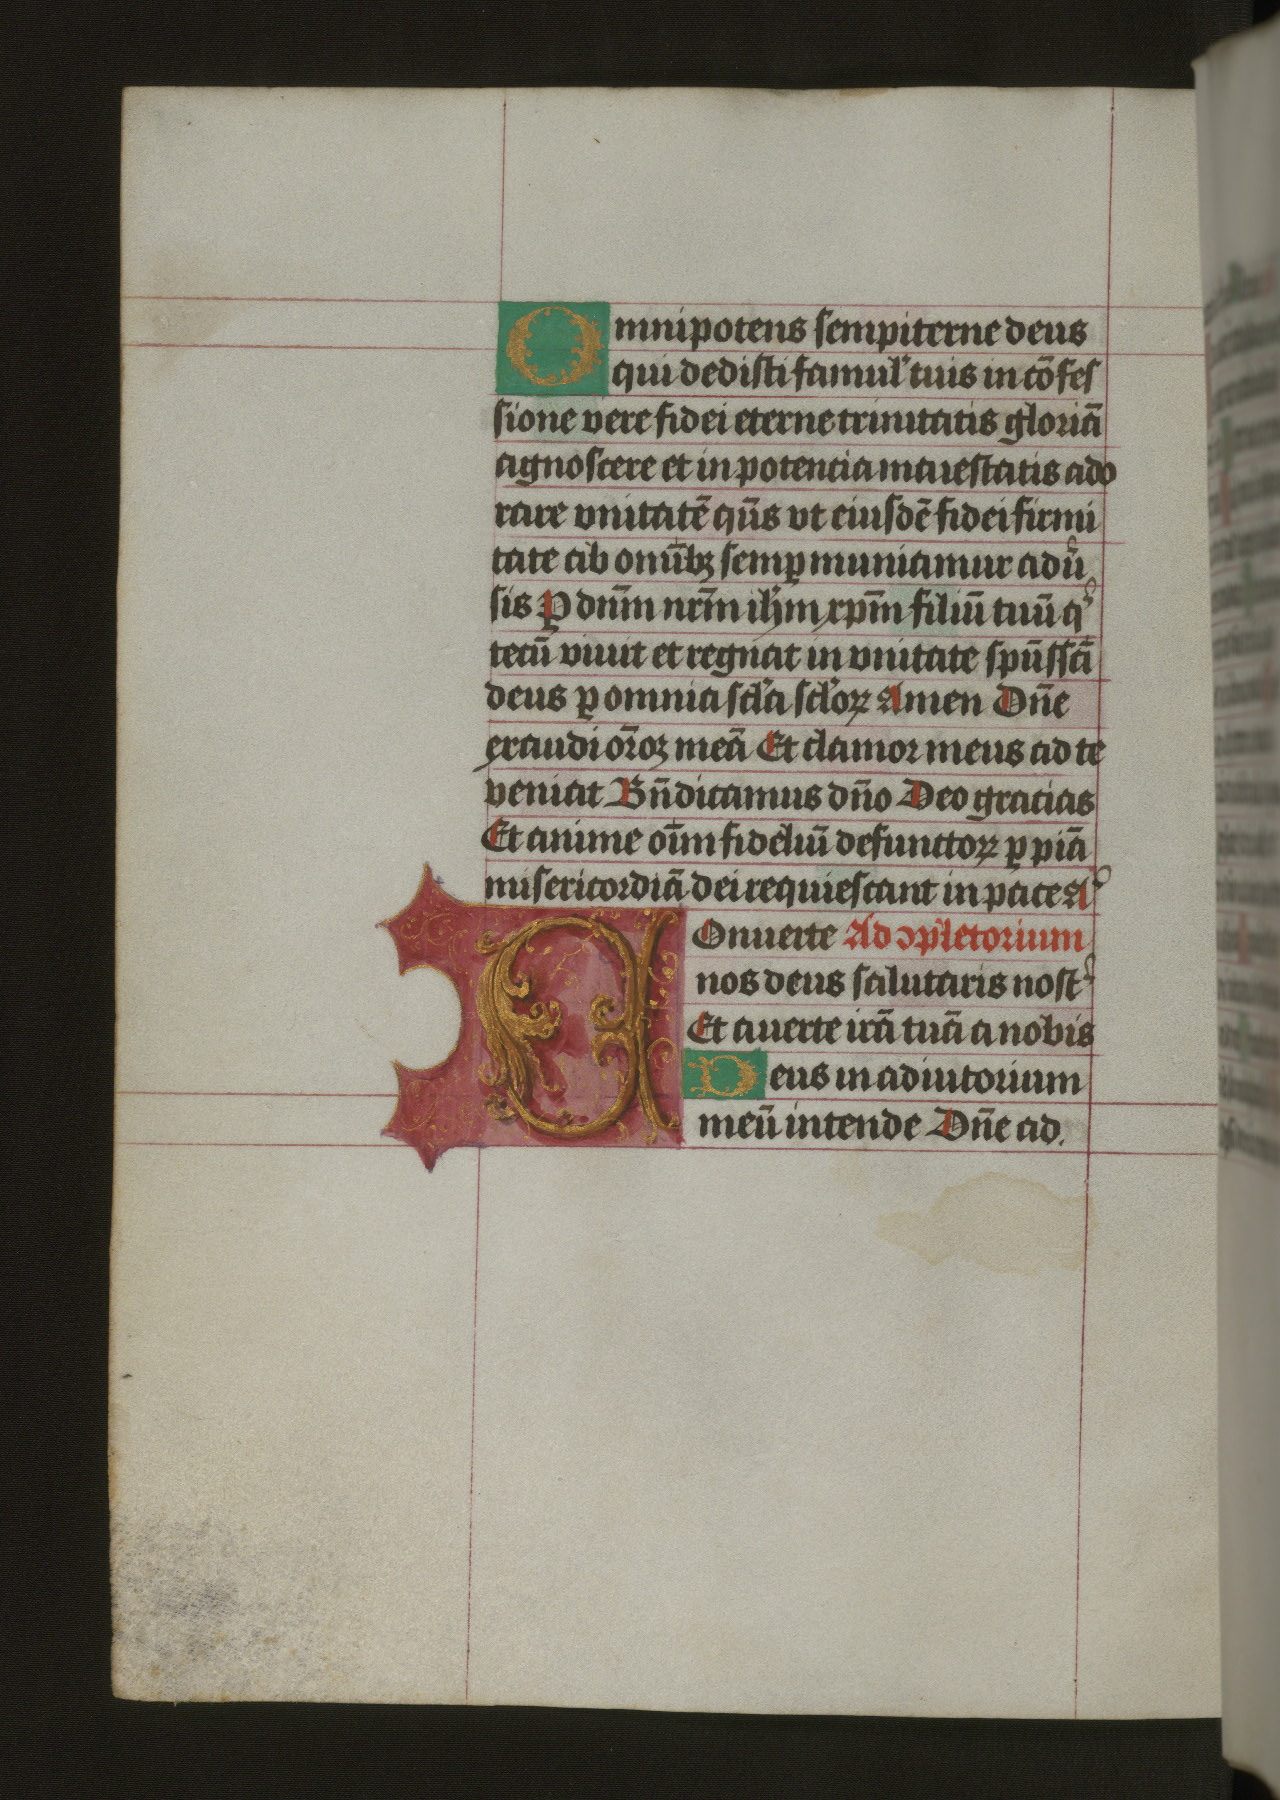 Omnipotens sempiterne deus
qui dedisti famul' tuis in cōfes
sione vere fidei eterne trinitatis gloriā
agnoscere et in potentia maiestatis ado
rare vnitatē qūs vt eiusdē fidei firmi
tate ab omībꝫ semꝑ muniamur adū
sis Ꝑ dn̄m nr̄m ih̄m xp̄m filiū tuū qͥ
tecū viuit et regnat in vnitate spūs scī
deus ꝑ omnia scl̄a scl̄oꝝ Amen Dn̄e
exaudi or̄oꝫ meā Et clamor meus ad te
veniat Bn̄dicamus dn̄o Deo gracias
Et anime oīm fideliū defunctoꝝ ꝑ piā
misericordiā dei requiescant in pace A
Conuerte Ad ↄpl'etorium
nos deus salutaris nost
Et auerte irā tuā a nobis
Deus in adiutorium
meū intende Dn̄e ad.